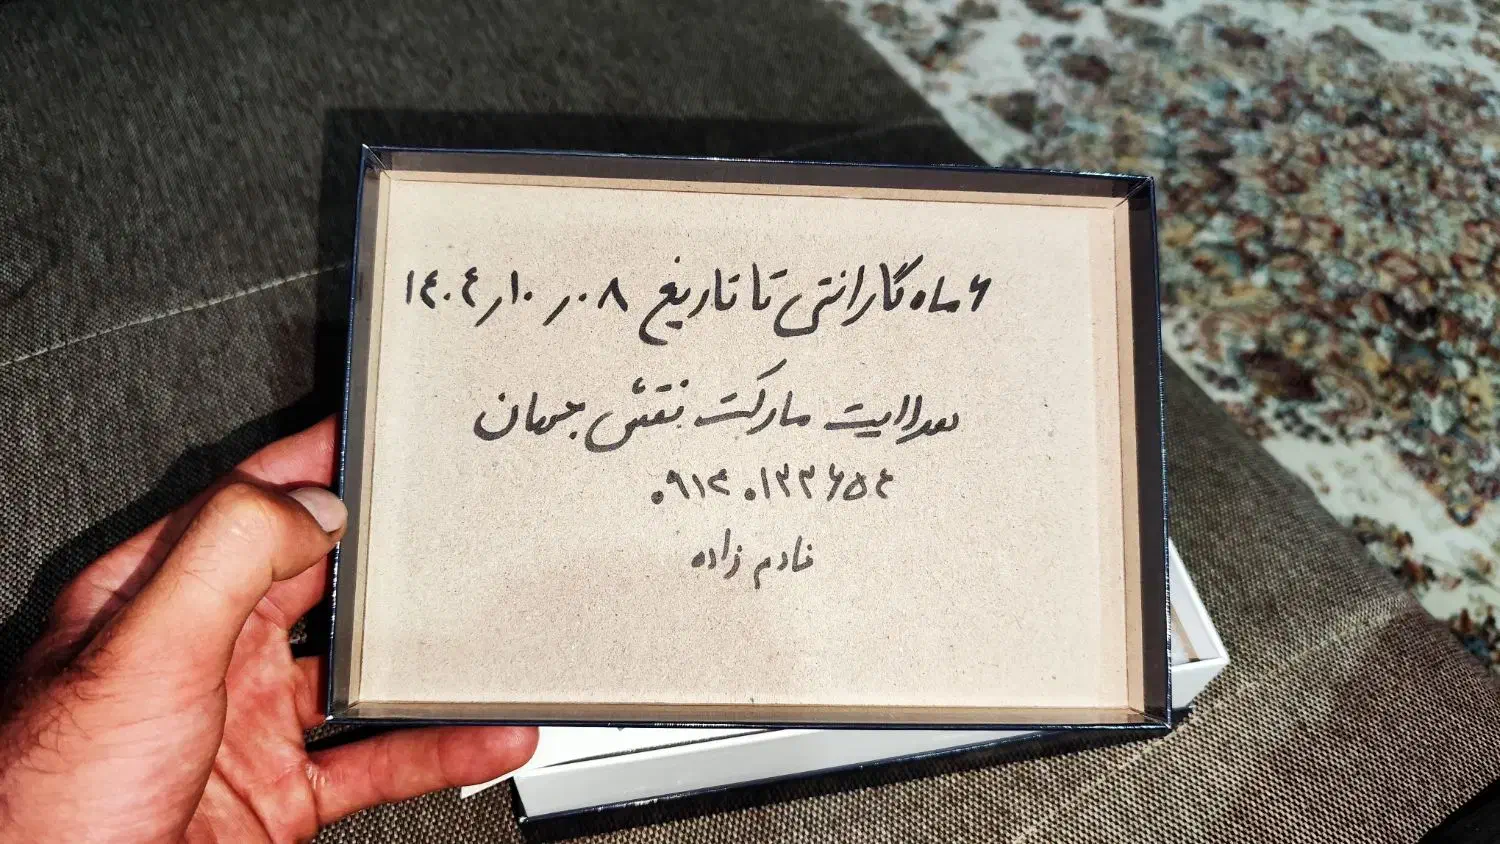 ۶ ماه گارانتی تا تاریخ ۰۸ر۱۰ر۱۴۰۴
مارکت نقش جهان
۰۹۱۲۰۱۳۳۶۵۴
خادم زاده